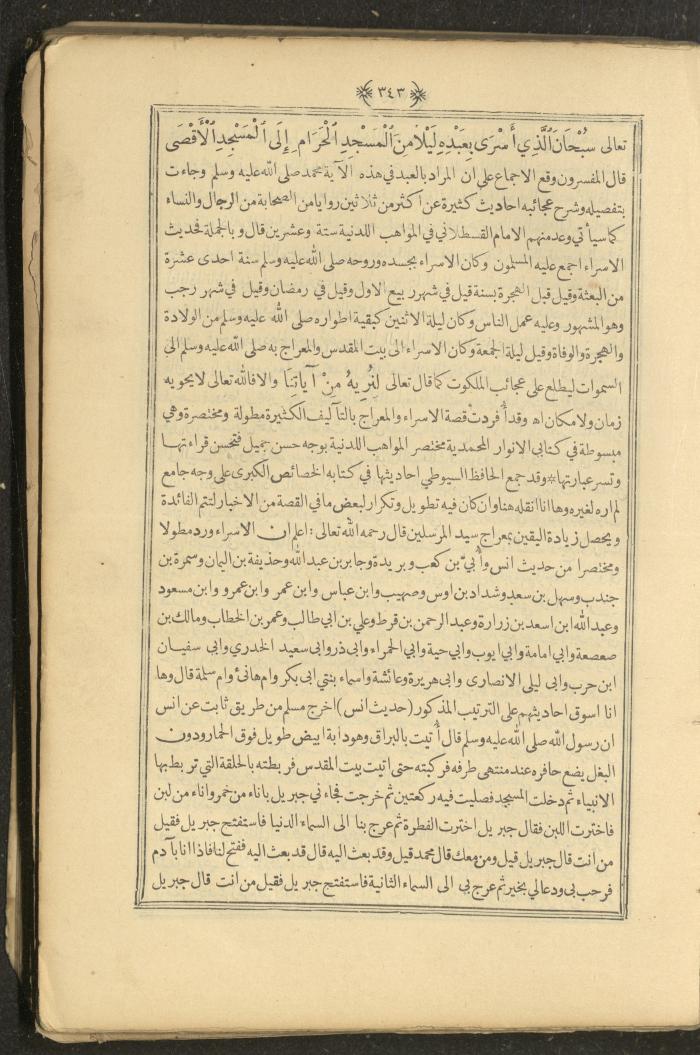 ٣٤٣
تعالى سُبْحَانَ ٱلَّذِي أَسْرَى بِعَبْدِهِ لَيْلاً مِنَ ٱلْمَسْجِدِ ٱلْحَرَامِ إِلَى ٱلْمَسْجِدِ ٱلْأَقْصَى
قال المفسرون وقع الاجماع على ان المراد بالعبد في هذه الآية محمد صلى الله عليه وسلم وجاءت
بتفصيله وشرح عجائبه احاديث كثيرة عن أكثر من ثلاثين راويا من الصحابة من الرجال والنساء
كما سيأتي وعد منهم الامام القسطلاني في المواهب اللدنية ستة وعشرين قال وبالجملة فحديث
الاسراء اجمع عليه المسلمون وكان الاسراء بجسده وروحه صلى الله عليه وسلم سنة احدى عشرة
من البعثة وقيل قبل الهجرة بسنة قيل في شهر ربيع الاول وقيل في رمضان وقيل في شهر رجب
وهو المشهور وعليه عمل الناس وكان ليلة الاثنين كبقية اطواره صلى الله عليه وسلم من الولادة
والهجرة والوفاة وقيل ليلة الجمعة وكان الاسراء الى بيت المقدس والمعراج به صلى الله عليه وسلم الى
السموات ليطلع على عجائب الملكوت كما قال تعالى لِنُرِيهُ مِنْ آيَاتِنَا والا فالله تعالى لا يحويه
زمان ولا مكان اه وقد أُفردتْ قصة الاسراء والمعراج بالتآليف الكثيرة مطولة ومختصرة وهي
مبسوطة في كتابي الانوار المحمدية مختصر المواهب اللدنية بوجه حسن جميل فتحسن قراءتها
وتسر عبارتها * وقد جمع الحافظ السيوطي احاديثها في كتابه الخصائص الكبرى على وجه جامع
لم اره لغيره وها انا انقله هنا وان كان فيه تطويل وتكرار لبعض ما في القصة من الاخبار لتتم الفائدة
ويحصل زيادة اليقين بمعراج سيد المرسلين قال رحمه الله تعالى : اعلم ان الاسراء ورد مطولا
ومختصرا من حديث انس وأُبيّ بن كعب وبريدة وجابر بن عبد الله وحذيفة بن اليمان وسمرة بن
جندب وسهل بن سعد وشداد بن اوس وصهيب وابن عباس وابن عمر وابن عمرو وابن مسعود
وعبد الله ابن اسعد بن زرارة وعبد الرحمن بن قرط وعلي بن ابي طالب وعمر بن الخطاب ومالك بن
صعصعة وابي امامة وابي ايوب وابي حية وابي الحمراء وابي ذر وابي سعيد الخدري وابي سفيان
ابن حرب وابي ليلى الانصارى وابي هريرة وعائشة واسماء بنتي ابي بكر وام هانئ وام سلمة قال وها
انا اسوق احاديثهم على الترتيب المذكور ( حديث انس ) اخرج مسلم من طريق ثابت عن انس
ان رسول الله صلى الله عليه وسلم قال أُتيت بالبراق وهو دابة ابيض طويل فوق الحمار ودون
البغل يضع حافره عند منتهى طرفه فركبته حتى اتيت بيت المقدس فربطته بالحلقة التي تربط بها
الانبياء ثم دخلت المسجد فصليت فيه ركعتين ثم خرجت فجاءني جبريل باناء من خمر واناء من لبن
فاخترت اللبن فقال جبريل اخترت الفطرة ثم عرج بنا الى السماء الدنيا فاستفتح جبريل فقيل
من انت قال جبريل قيل ومن معك قال محمد قيل وقد بعث اليه قال قد بعث اليه ففتح لنا فاذا انا بآدم
فرحب بي ودعا لي بخير ثم عرج بي الى السماء الثانية فاستفتح جبريل فقيل من انت قال جبريل